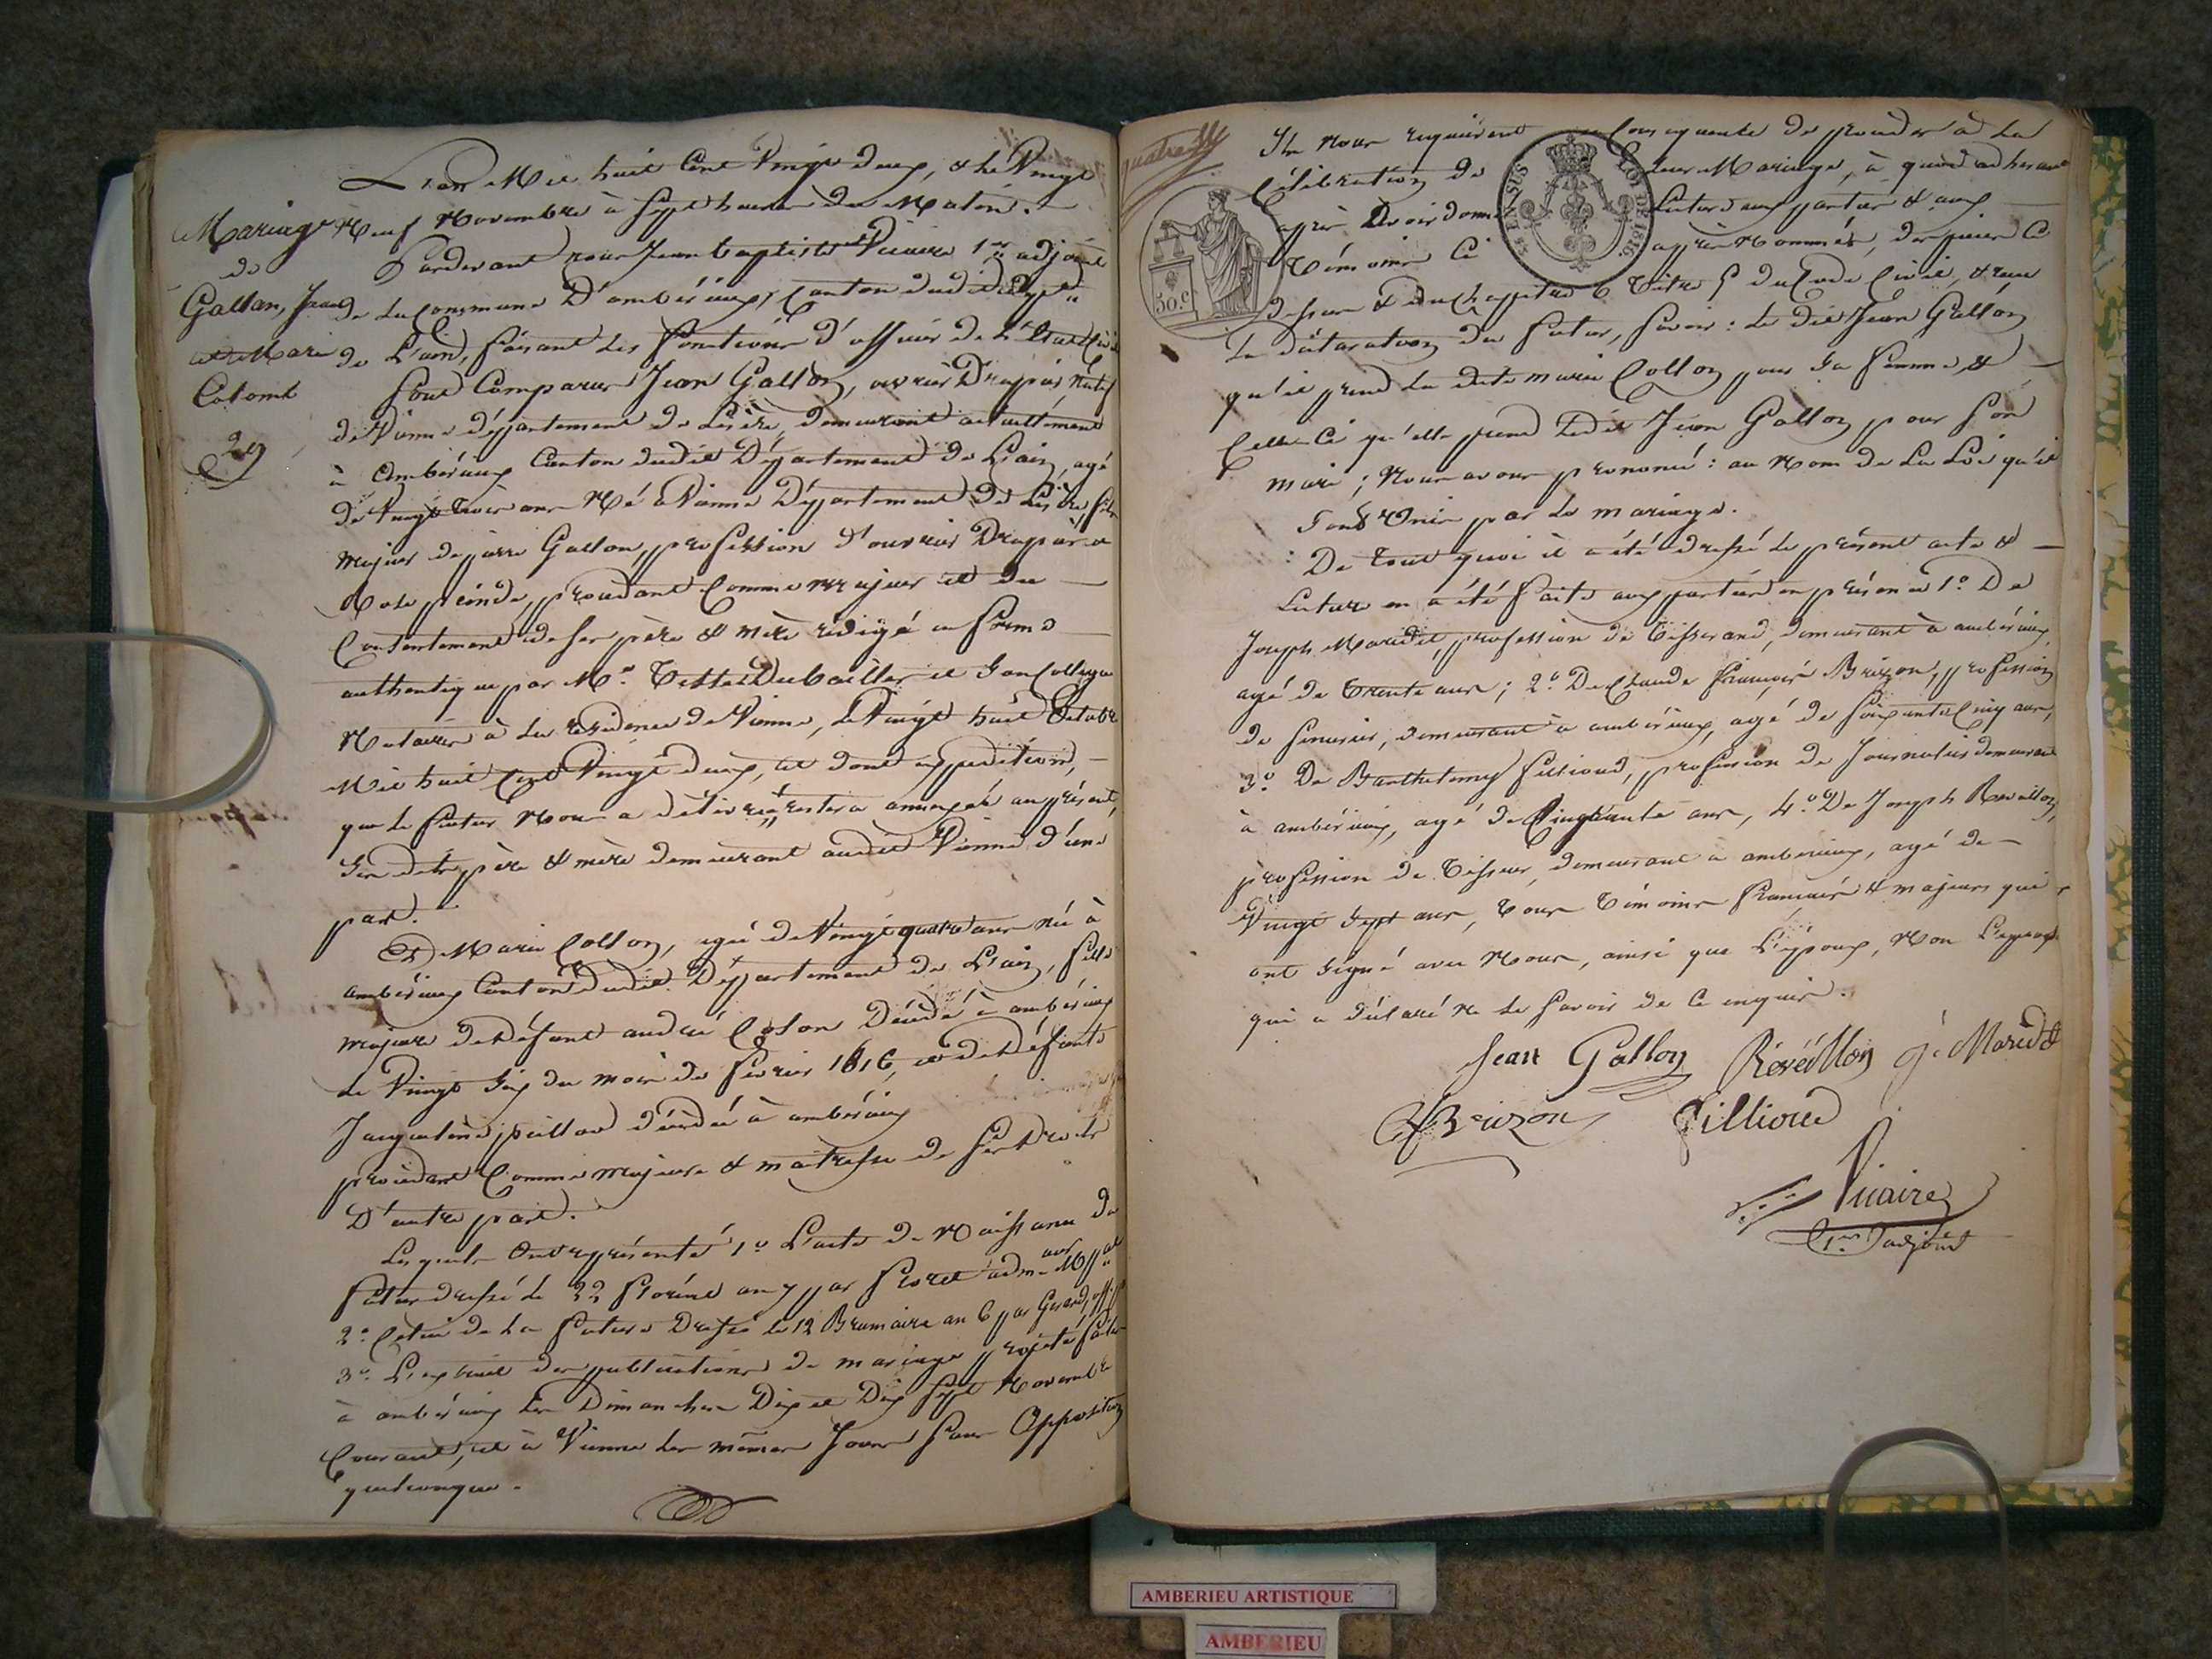 L'an Mil huit Cent Vingt deux, & le Vingt
Neuf Novembre à Sept heures du Matin.
Mariage
de
Gallon, Jean
et Marie
Colomb
29
Pardevant nous Jean baptiste Vicaire 1er adjoint
de la Commune D'ambérieux, Canton dudit, Dépt
de L'ain, faisant les fonctions d'officier de L'Etat Civil
Sont Comparus Jean Gallon, ouvrier Drapier, natif
de Vienne département de Lisère, demeurant actuellement
à ambérieux Canton dudit Département de L'ain, agé
de Vingt trois ans Né à Vienne Département de Lisère, fils
majeur de pierre Gallon, profession d'ouvrier Drapier et
procédant Comme majeur et du
Consentement de ses père & mère rédigé en forme
authentique par Me. et Son Collègue
Notaires à la résidence de Vienne, le Vingt huit Octobre
Mil huit Cent Vingt deux, et dont expédition,
que le futur Nous a délivré, restera annexée au présent,
Ses dits père & mère demeurant audit Vienne d'une
part.
Et Marie Collon, agée de Vingt quatre ans née à
ambérieux Canton dudit Département de L'ain, fille
majeure de défunt andré Colon Décédé à ambérieux
le Vingt Six du mois de février 1816, et de défunte
Jacqueline décédée à ambérieux
procédant Comme majeure & maitresse de ses droits
D'autre part.
Lesquels Ont représenté 1o L'acte de Naissance du
futur dressé le 22 floréal an 7 par
2o. Celui de la future Dressé le 12 Brumaire an 6 par
3o. L'extrait des publications de mariage projeté faites
à ambérieux les Dimanches Dix et Dix Sept Novembre
Courant, et à Vienne les mêmes Jours Sans Opposition
quelconque.
Ils nous requièrent en Conséquence de procéder à la
Célébration de leur Mariage, à quoi adhérant
après avoir donné lecture aux parties & aux
témoins Ci après Nommés, des pièces Ci
dessus & du Chapitre 6 titre 5 du Code Civil, & reçu
la déclaration des futurs, Savoir : le dit Jean Gallon
qu'il prend la dite marie Collon pour Sa femme, &
Celle-Ci qu'elle prend Ledit Jean Gallon pour Son
mari ; Nous avons prononcé : au Nom de La Loi qu'ils
Sont Unis par le mariage.
De tout quoi il a été dressé le présent acte &
Lecture en a été faite aux parties en présence 1o. De
Joseph Maridet, profession de tisserand, demeurant à ambérieux,
agé de trente ans ; 2o. De Claude françois Brizon, profession
de demeurant à ambérieux, agé de Soixante Cinq ans,
3o. De Barthelemy fillioud, profession de Journalier demeurant
à ambérieux, agé de Cinquante ans, 4o. De Joseph Revellon,
profession de tisseur, demeurant à ambérieux, agé de
Vingt Sept ans, tous témoins français & majeurs qui
ont Signé avec Nous, ainsi que L'époux, Non L'épouse
qui a déclaré ne le Savoir de Ce enquis.
Jean Gallon Révéillon J. Maridet
Brizon fillioud
Vicaire
1er adjoint
50.c
LOI DE 1816.
AMBERIEU ARTISTIQUE
AMBERIEU